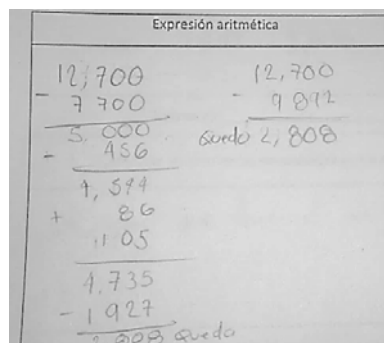 Expresión aritmética
12,700
- 7 700
5,000
- 456
4,544
+ 86
105
4,735
- 1 927
2,808 queda
12,700
- 9 892
Quedo 2,808